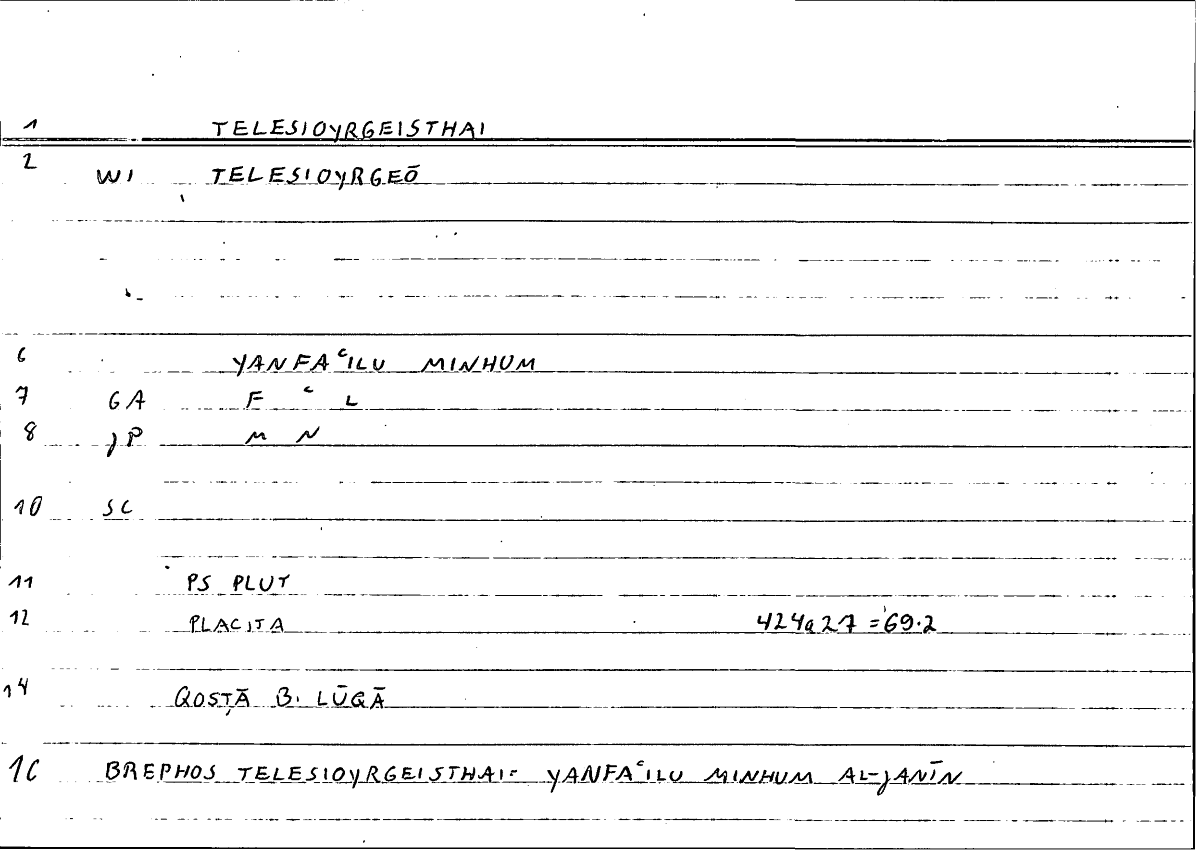 1 TELESIOYRGEISTHAI
2 WI TELESIOYRGEŌ
6 YANFAʿILU MINHUM
7 GA F ʿ L
8 JP M N
10 SC
11 PS PLUT
12 PLACITA 424a27=69.2
14 QOSṬĀ B. LŪQĀ
16 BREPHOS TELESIOYRGEISTHAI= YANFAʿILU MINHUM AL-JANĪN